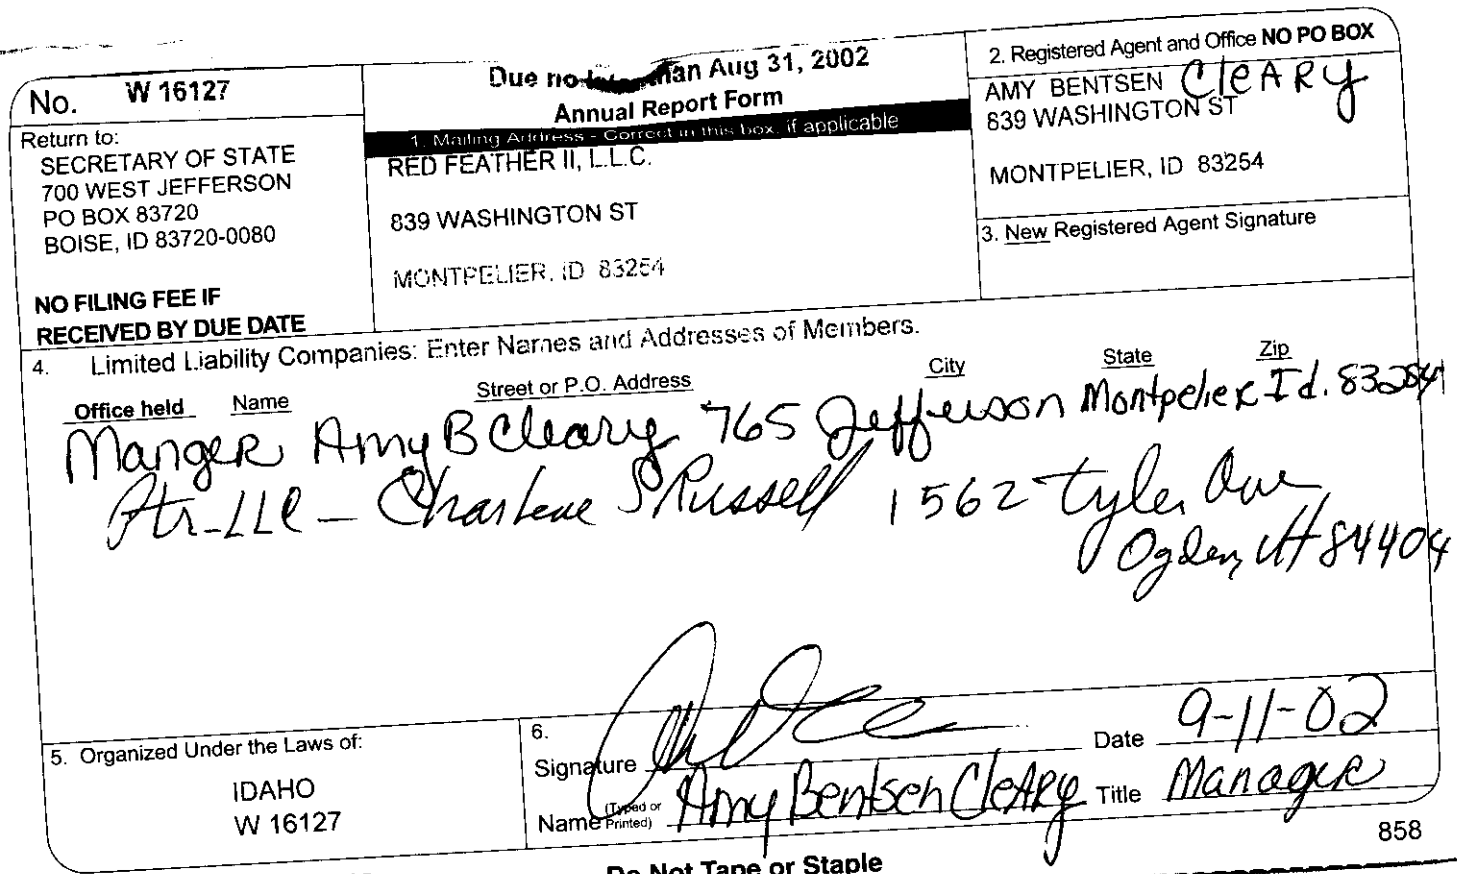 No. W 16127
Return to:
SECRETARY OF STATE
700 WEST JEFFERSON
PO BOX 83720
BOISE, ID 83720-0080
NO FILING FEE IF
RECEIVED BY DUE DATE
Due no later than Aug 31, 2002
Annual Report Form
1. Mailing Address - Correct in this box, if applicable
RED FEATHER II, L.L.C.
839 WASHINGTON ST
MONTPELIER, ID 83254
2. Registered Agent and Office NO PO BOX
AMY BENTSEN CleARy
839 WASHINGTON ST
MONTPELIER, ID 83254
3. New Registered Agent Signature
4. Limited Liability Companies: Enter Names and Addresses of Members.
Office held Name Street or P.O. Address City State Zip
Manger Amy B Cleary 765 Jefferson Montpelier Id. 83254
Ptr-LLC - Charlene S Russell 1562 Tyler Ave
Ogden, Ut 84404
5. Organized Under the Laws of:
IDAHO
W 16127
6.
Signature Date 9-11-02
Name (Typed or Printed) Amy Bentsen Cleary Title Manager
858
Do Not Tape or Staple